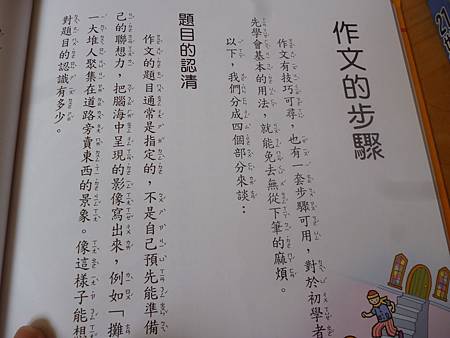 作文的步驟
作文有技巧可尋,也有一套步驟可用,對於初學者
先學會基本的用法,就能免去無從下筆的麻煩。
以下,我們分成四個部分來談:
題目的認清
作文的題目通常是指定的,不是自己預先能準備
己的聯想力,把腦海中呈現的影像寫出來,例如「攤
一大堆人聚集在道路旁賣東西的景象。像這樣子能想
對題目的認識有多少。
21